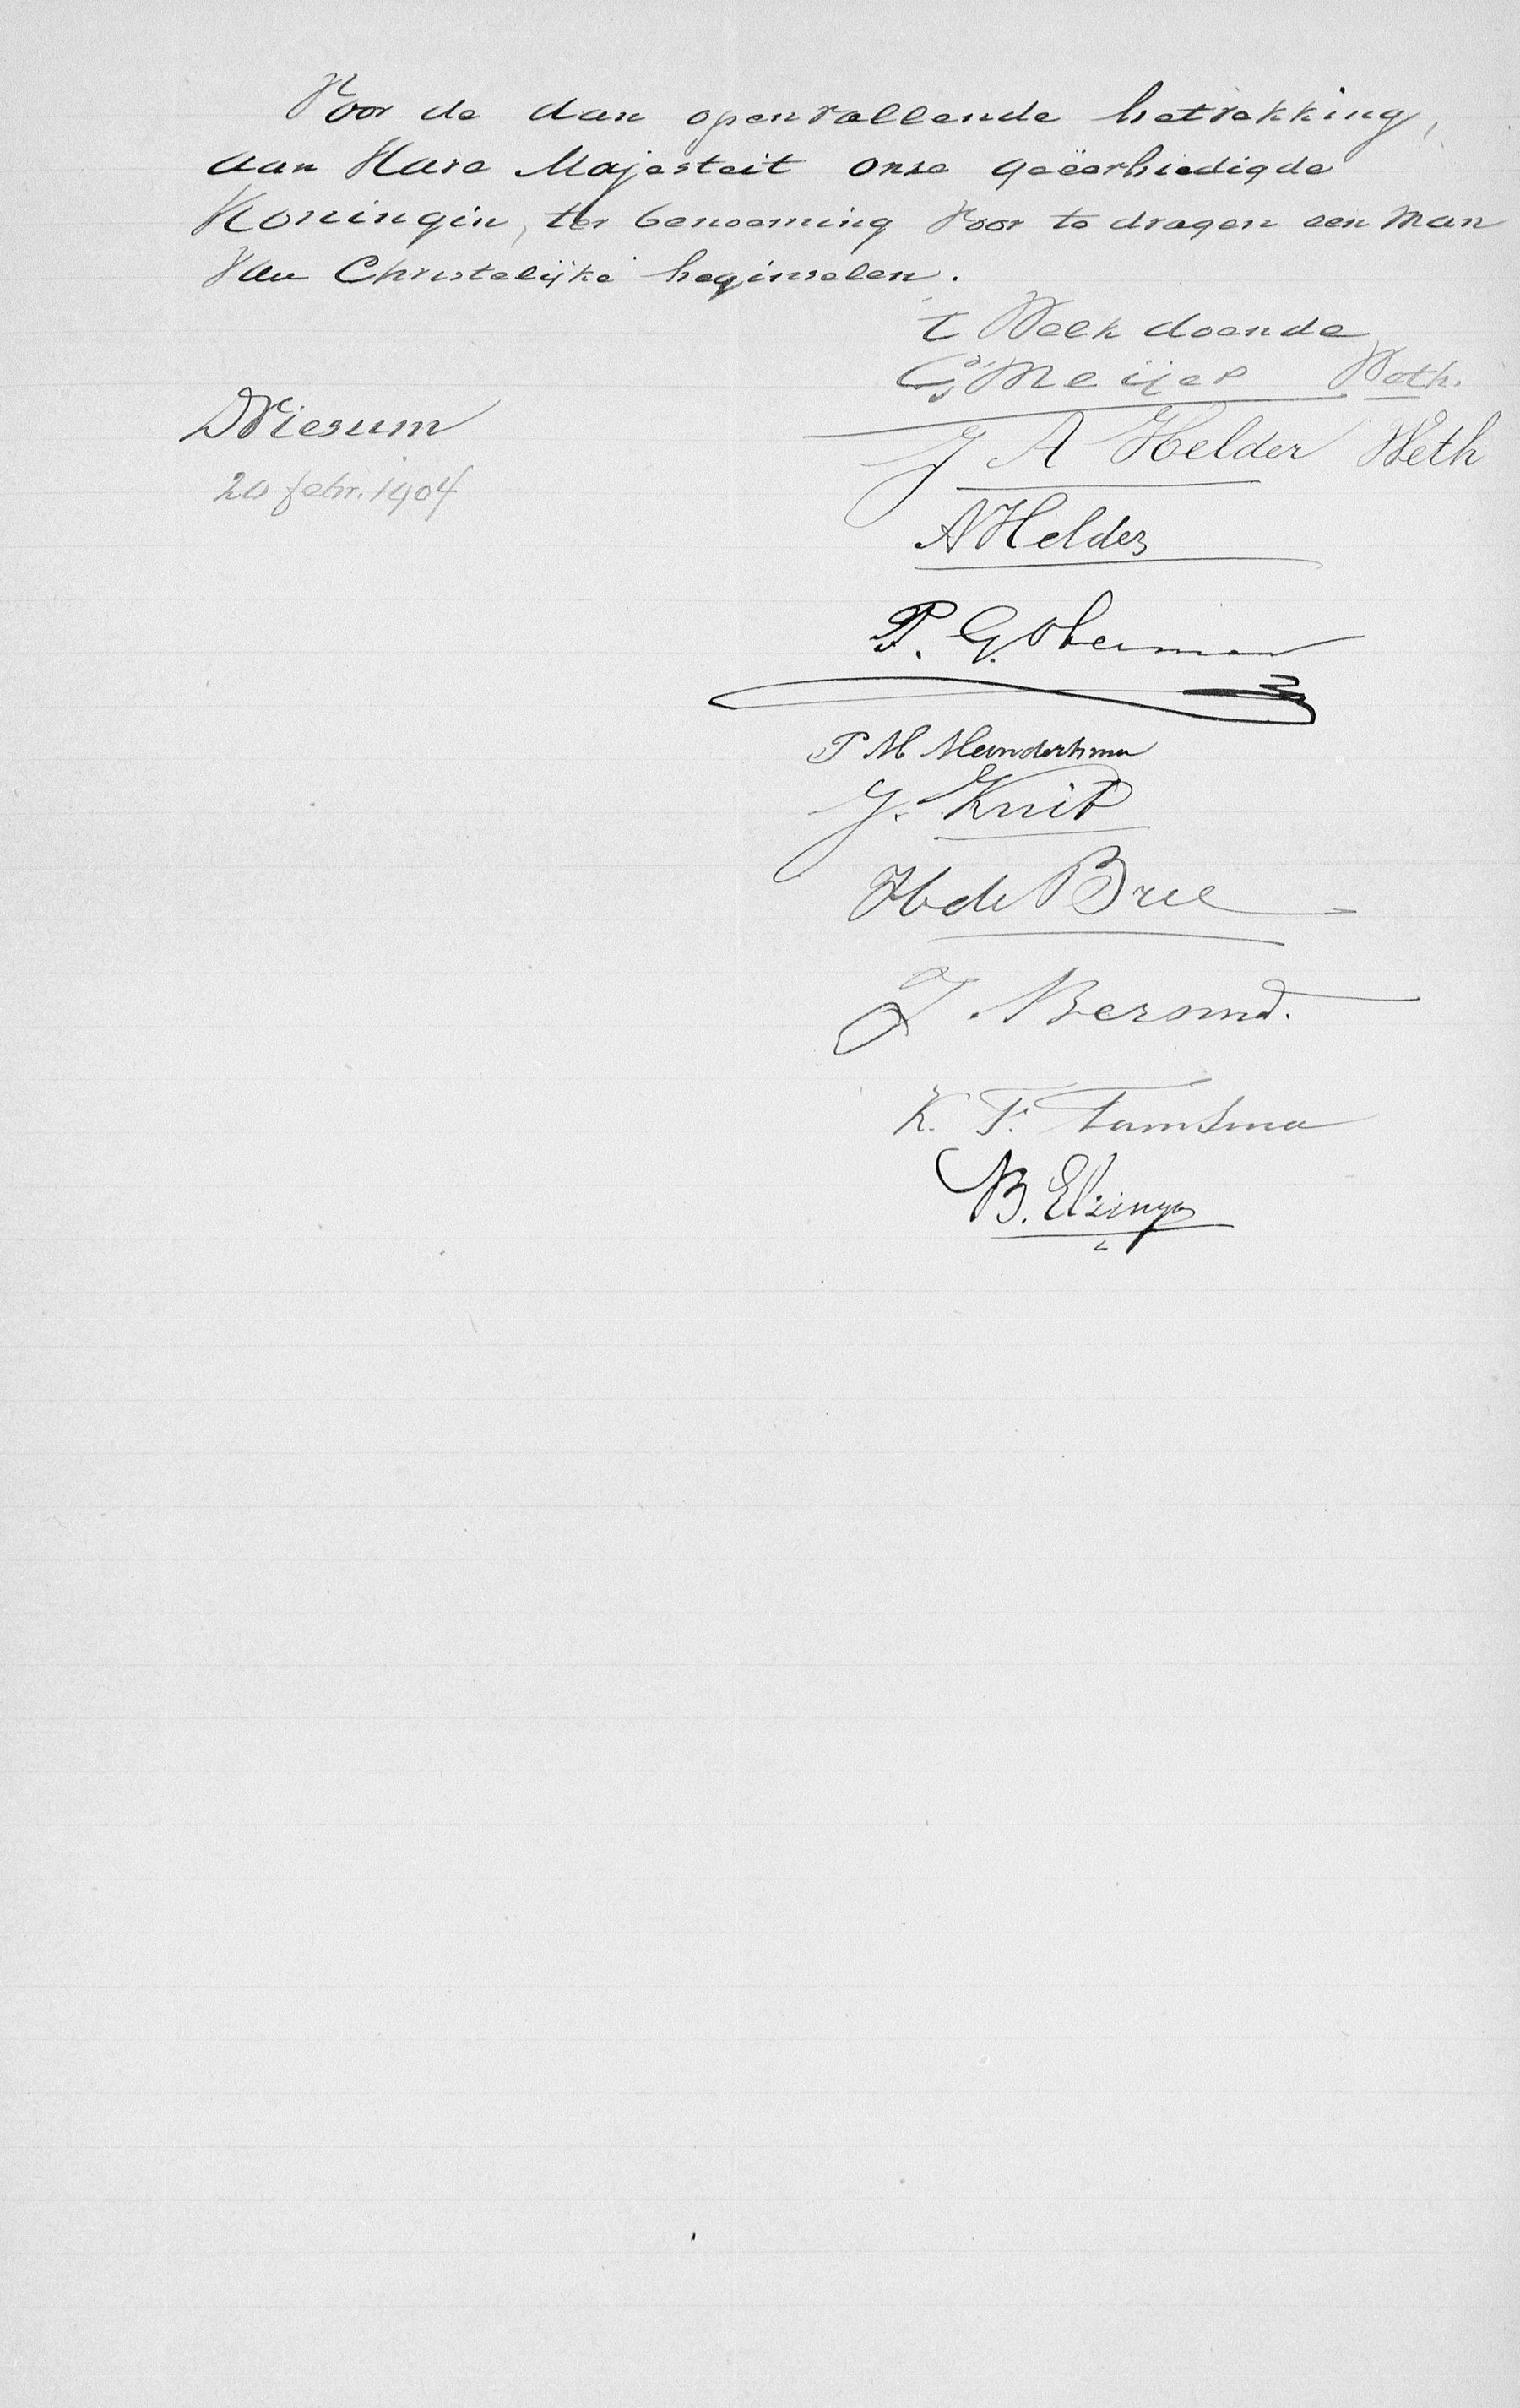 Voor de dan openvallende betrekking,
aan Hare Majesteit onze geëerbiedigde
Koningin, ter benoeming voor te dragen een man
van Christelijke beginselen.
't Welk doende
G Meijer Weth.
Driesum
20 febr. 1904
J A Helder Weth
A Helder
P. G. Oberman
P M Meindertsma
J. Knip
H de Bree
J.
K. F. Tamsma
B. Elzinga